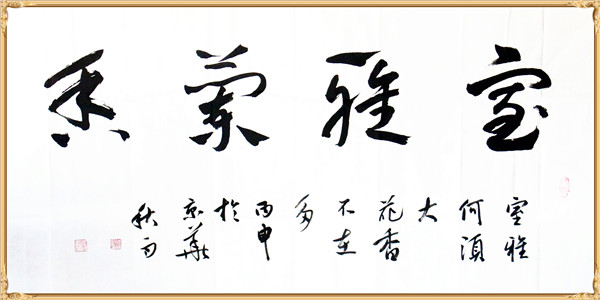 室雅蘭香
室雅
何須
大
花香
不在
多
丙申
於
京華
秋